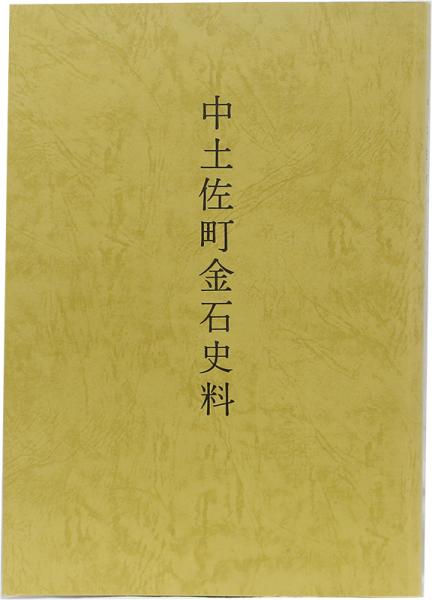 中土佐町金石史料